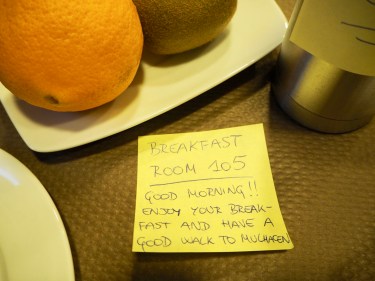 BREAKFAST
ROOM 105
GOOD MORNING!!
ENJOY YOUR BREAK-
FAST AND HAVE A
GOOD WALK TO